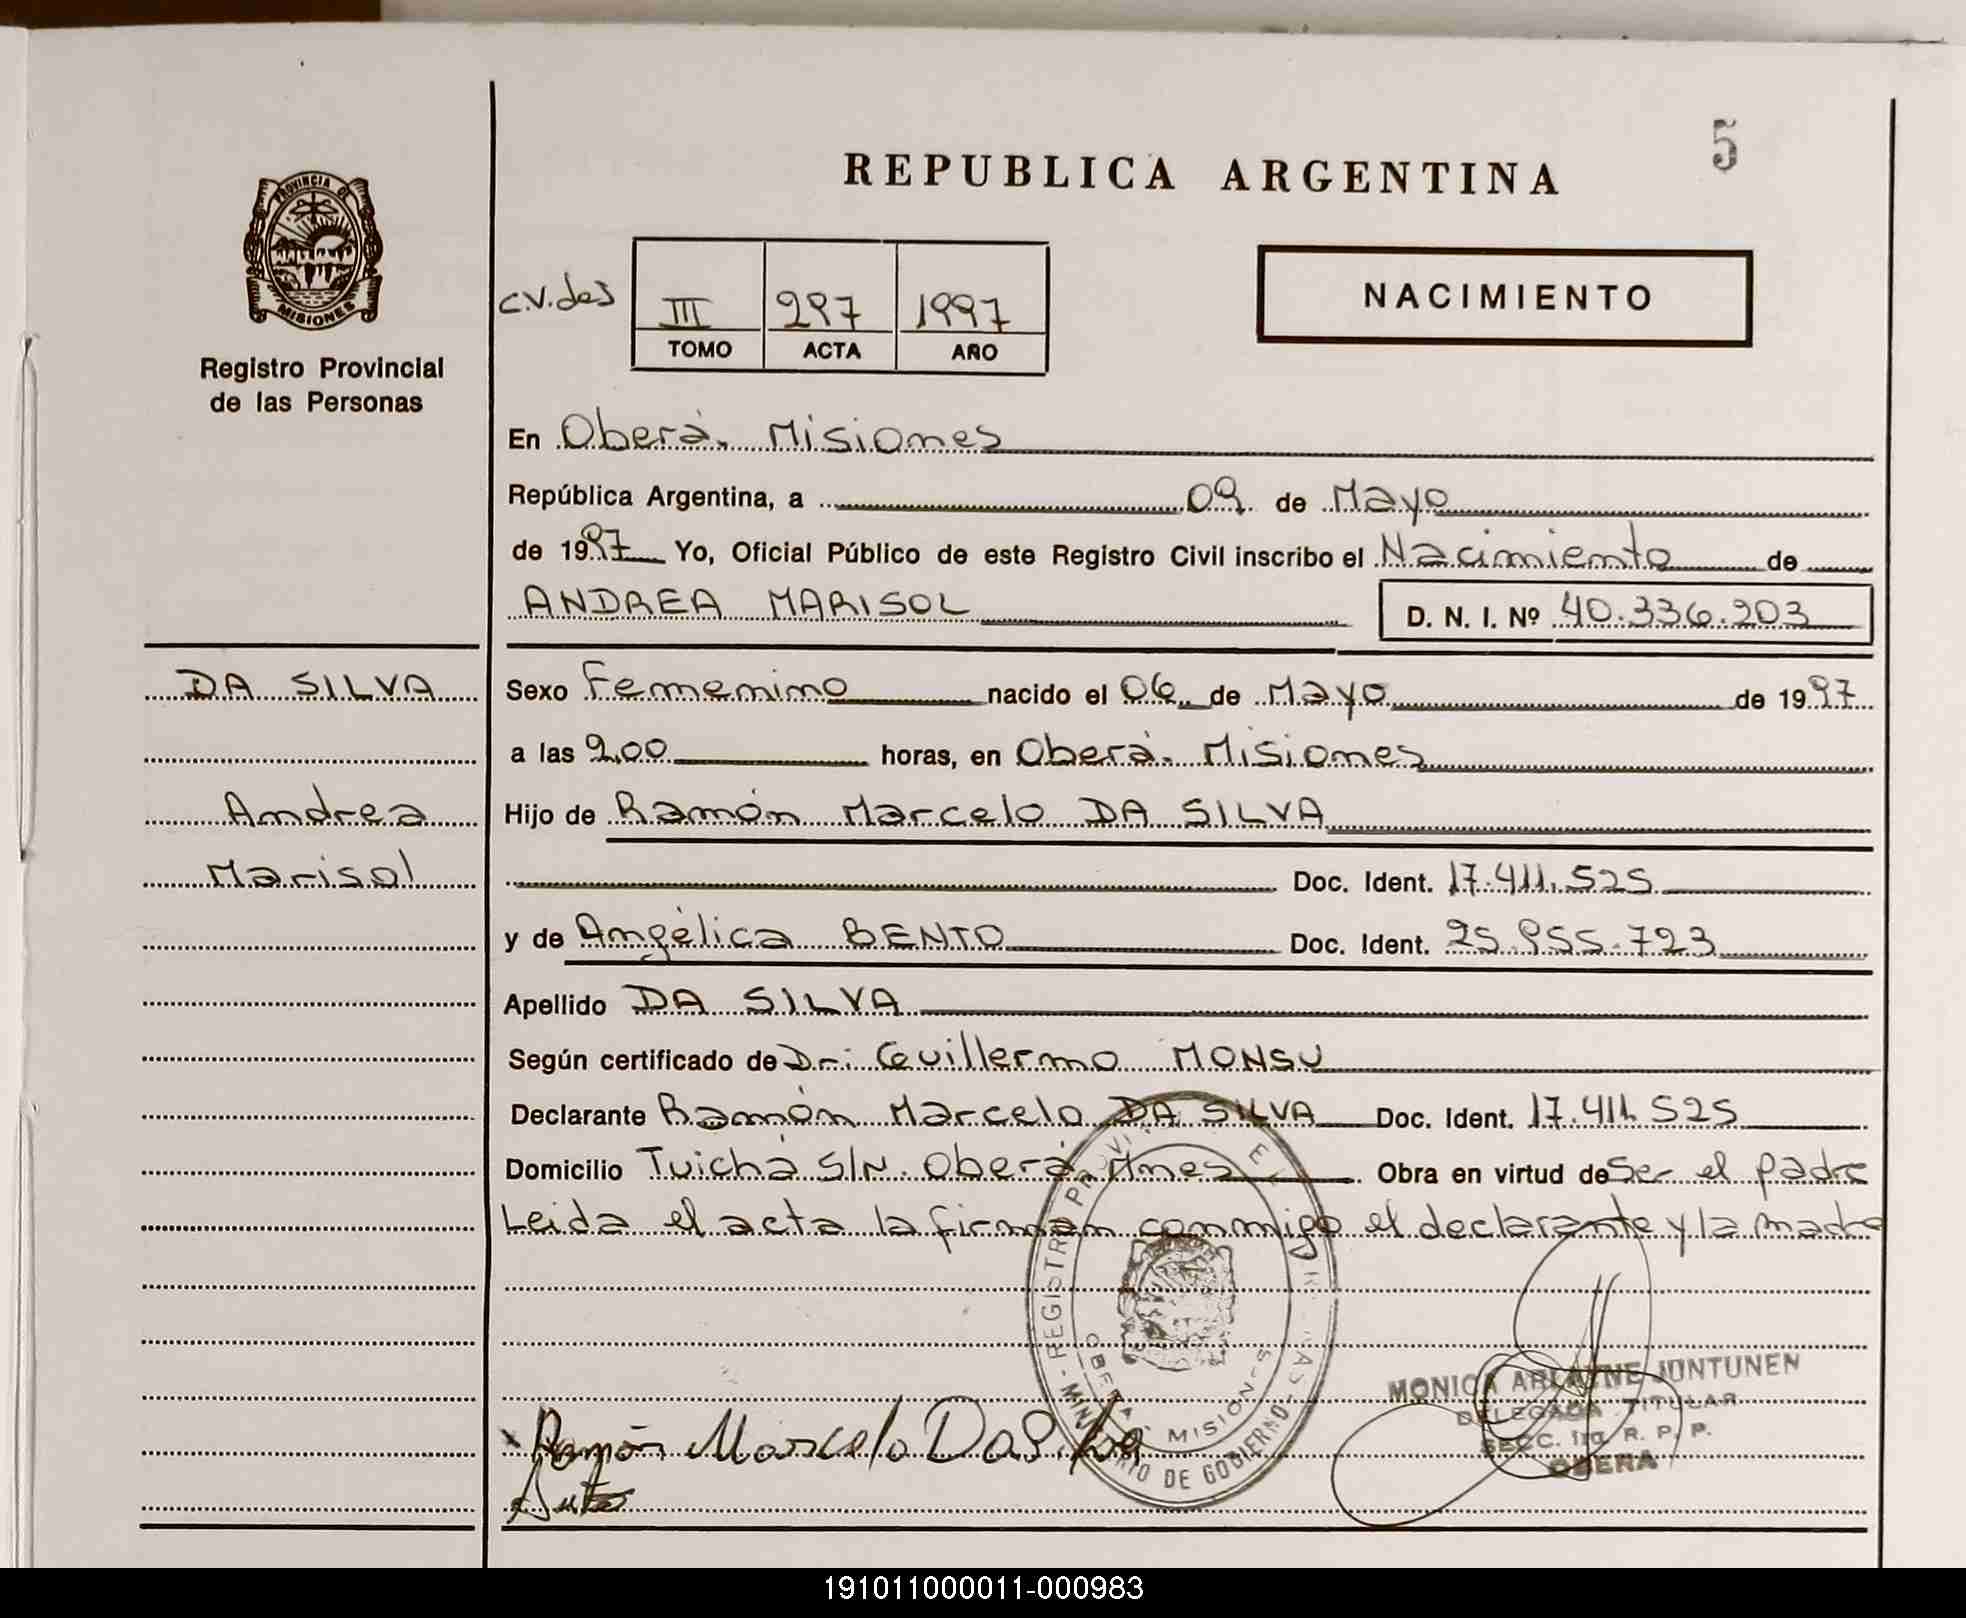 5
REPUBLICA ARGENTINA
PROVINCIA D
MISIONES
Registro Provincial
de las Personas
C.V.des
III 297 1997
TOMO ACTA AÑO
NACIMIENTO
En Oberá. Misiones
República Argentina, a 09 de Mayo
de 1997 Yo, Oficial Público de este Registro Civil inscribo el Nacimiento de
ANDREA MARISOL D. N. I. Nº 40.336.203
DA SILVA
Sexo Femenino nacido el 06 de Mayo de 1997
a las 2,00 horas, en Oberá. Misiones
Andrea
Hijo de Ramón Marcelo DA SILVA
Marisol
Doc. Ident. 17.411.525
y de Angélica BENTO Doc. Ident. 25.955.723
Apellido DA SILVA
Según certificado de Dr: Guillermo MONSU
Declarante Ramón Marcelo DA SILVA Doc. Ident. 17.411.525
Domicilio Tuichá S/N. Oberá, Mnes Obra en virtud de Ser el padre
Leida el acta la firman conmigo el declarante y la madre
REGISTRO PROVI
MINISTERIO DE GOBIERNO
OBERA MISIONES
MONICA ARIADNE JUNTUNEN
DELEGADA TITULAR
SECC. 1ra R. P. P.
OBERA
x Ramón Marcelo DaSilva
191011000011-000983